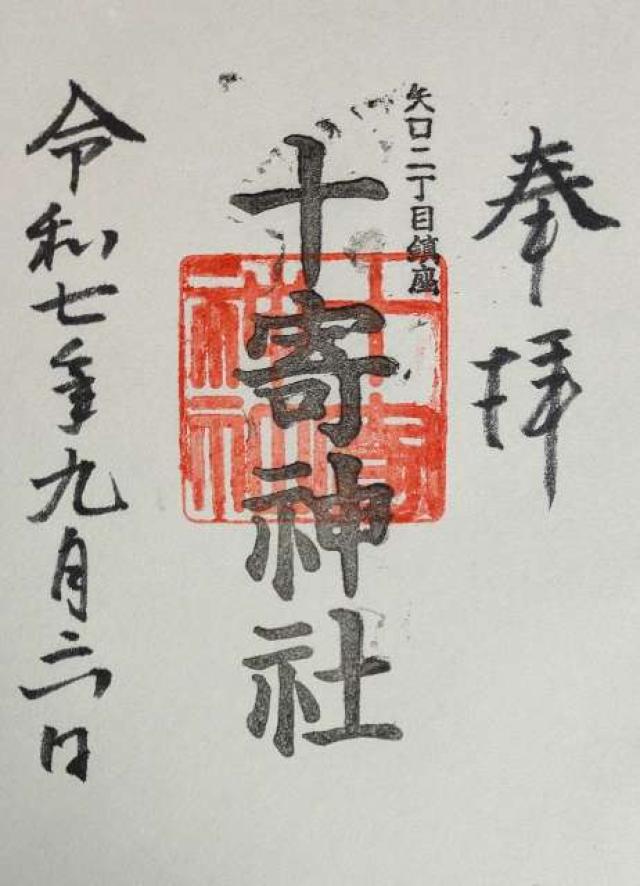 奉拝
矢口二丁目鎮座
十寄神社
十寄神社
令和七年九月六日